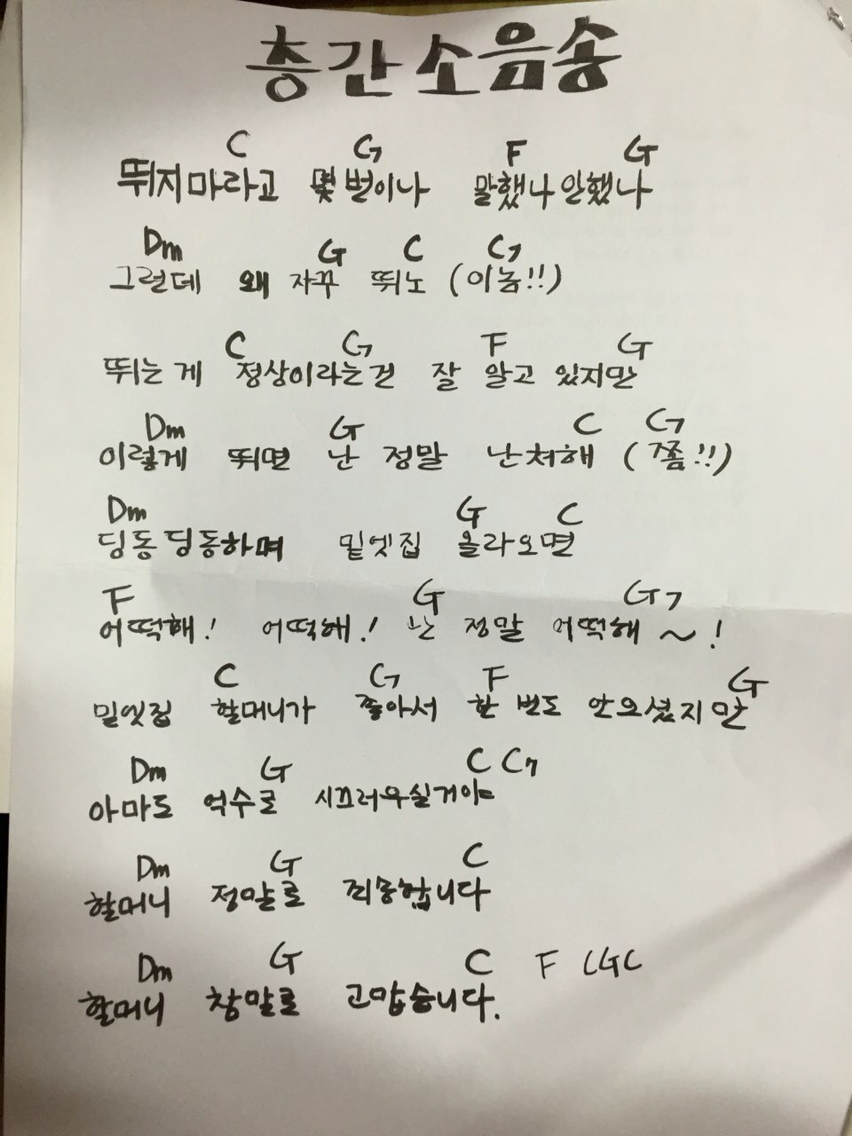 층간소음송
C G F G
뛰지마라고 몇번이나 말했나 안했나
Dm G C C7
그런데 왜 자꾸 뛰노 (이놈!!)
C G F G
뛰는 게 정상이라는건 잘 알고 있지만
Dm G C C7
이렇게 뛰면 난 정말 난처해 (쫌!!)
Dm G C
딩동딩동하며 밑엣집 올라오면
F G G7
어떡해! 어떡해! 난 정말 어떡해 ~!
C G F G
밑엣집 할머니가 좋아서 한 번도 안오셨지만
Dm G C C7
아마도 억수로 시끄러우실거야
Dm G C
할머니 정말로 죄송합니다
Dm G C F CGC
할머니 참말로 고맙습니다.